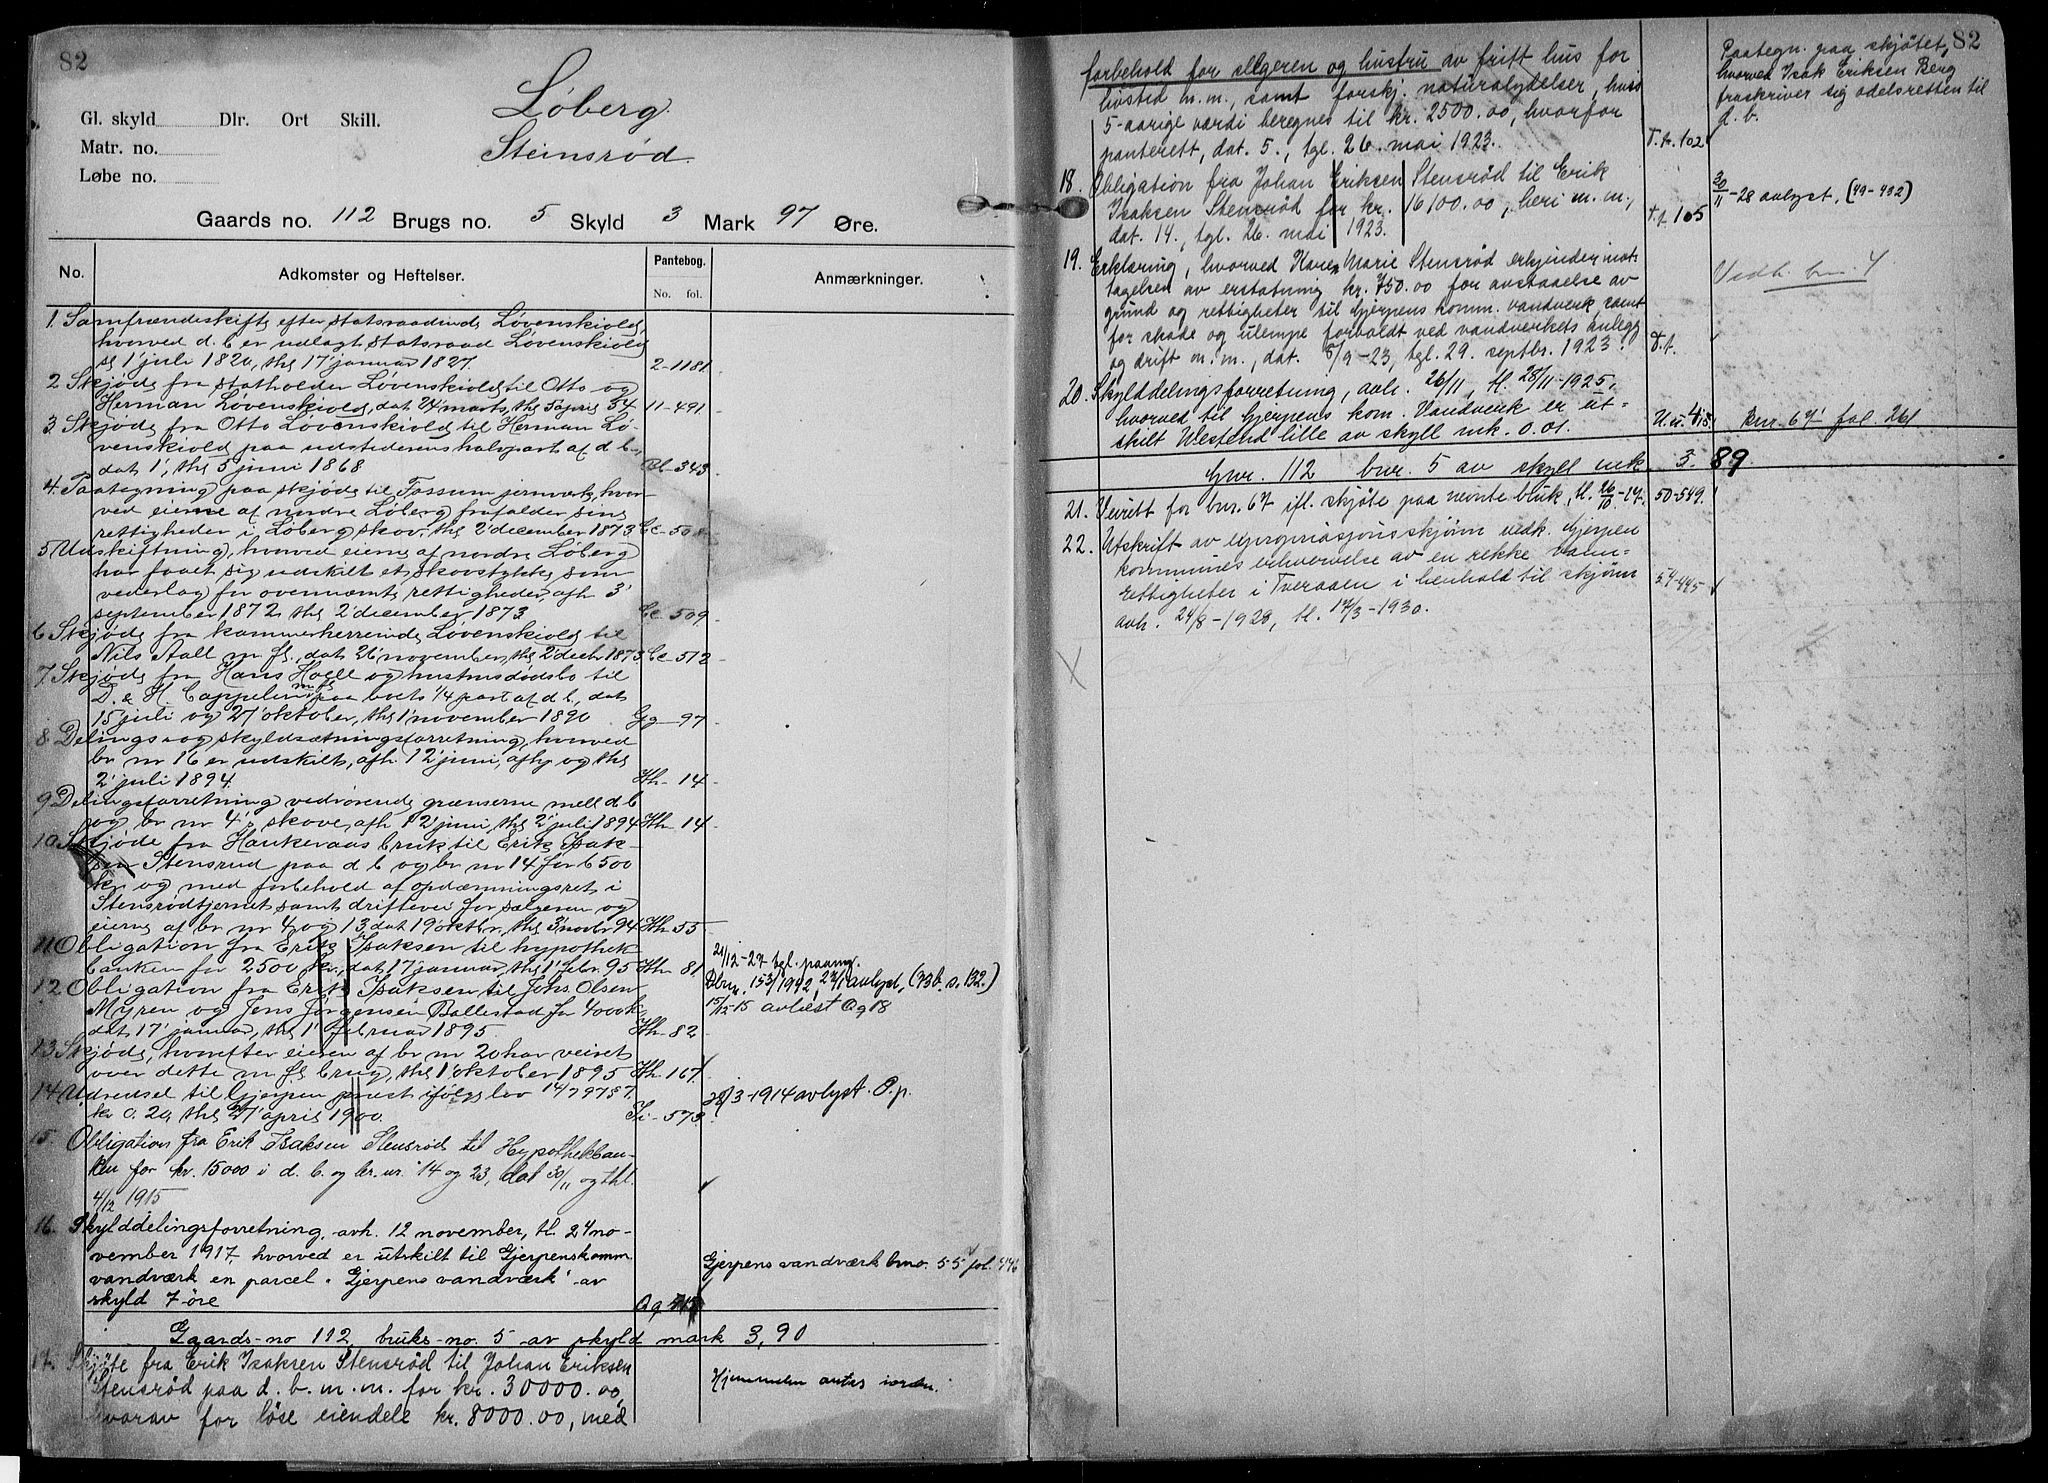 82
Løberg.
Steinsrød.
Gl. skyld Dlr. Ort Skill.
Matr. no.
Løbe no.
Gaards no. 112 Brugs no. 5 Skyld 3 Mark 97 Øre.
No. Adkomster og Heftelser. Pantebog. No. fol. Anmærkninger.
1. Samfrændeskifte efter statsraadinde Løvenskiold,
hvorved d. b. er udlagt statsraad Løvenskiold
1' juli 1820, thl 17' januar 1827. 2-1181
2 Skjøde fra statholder Løvenskiold til Otto og
Herman Løvenskiold, dat 24' marts, thl 5 april 34 11-491
3. Skjøde fra Otto Løvenskiold til Herman Lø-
venskiold paa udstederens halvpart af d b.,
dat 1', thl 5 juni 1868 Bb-343
4. Paategning paa skjøde til Fossum jernverk, hvor-
ved eierne af nordre Løberg frafalder sine
rettigheder i Løberg skov, thl 2' december 1873 Cc-508
5 Udskiftning, hvorved eierne af nordre Løberg
har faaet sig udskilt et skovstykke, som
vederlag for ovennævnte rettigheder, afh 3'
september 1872, thl 2' december 1873. Cc-509
6 Skjøde fra kammerherreinde Løvenskiold til
Nils Aall m fl., dat 26' november, thl 2' decbr 1873 Cc-512
7. Skjøde fra Hans Hoell og hustrus dødsbo til
D. & H. Cappelen m fl paa boets 1/4 part af d b, dat
15 juli og 27' oktober, thl 1' november 1890 Gg-97
8 Delings- og skyldsætningsforretning, hvorved
br nr 16 er udskilt, afh 12' juni, afhj og thl
2' juli 1894. Hh-14
9 Delingsforretning vedrørende grænserne mell d b
og br nr 4's skove, afh 12' juni, thl 2' juli 1894 Hh-14
10. Skjøde fra Hankeraas bruk til Erik Isak-
sen Stensrud paa d b og br nr 14 for 6500
kr og med forbehold af opdæmningsret i
Stensrødtjernet samt driftevei for sælgeren og
eierne af br nr 4 og 13, dat 19' oktbr, thl 3' novbr 94 Hh-55
11. Obligation fra Erik Isaksen til hypothek-
banken for 2500 kr., dat 17' januar, thl 1' febr. 95 Hh-81 21/12-27 tgl. paaengn.
Dbnr. 153/1942, 27/1 avlyst, (73b. s. 132.)
12 Obligation fra Erik Isaksen til Johs. Olsen
Myren og Jens Jørgensen Ballestad for 4000 kr,
dat 17' januar, thl 1' februar 1895. Hh-82 15/12-15 avlæst Qq 18
13. Skjøde, hvorefter eieren af br nr 20 har veiret
over dette m fl brug, thl 1' oktober 1895 Hh-167
14 Udredsel til Gjerpen prest ifølge lov 14/7 97 § 7.
kr 0.20, thl 27' april 1900. Ii-573. 28/3-1914 avlyst. O.p.
15. Obligation fra Erik Isaksen Stensrød til Hypothekban-
ken for kr. 15000 i d. b. og br. nr. 14 og 23, dat 30/11 og thl.
4/12 1915
16. Skylddelingsforretning, avh. 12 november, tl. 24 no-
vember 1917, hvorved er utskilt til Gjerpens komm.
vandværk en parcel "Gjerpens vandværk" av Gjerpens vandværk bno. 55 fol. 446
skyld 7 øre Qq
Gaards-no 112, bruks-no. 5 av skyld mark 3,90
17. Skjøte fra Erik Isaksen Stensrød til Johan Eriksen
Stensrød paa d. b. m. m. for kr. 30000.00, Hjemmelen
hvorav for løse eiendele kr. 8000.00, med
82
forbehold for selgeren og hustru av fritt hus for
husted m.m., samt forskj. naturalydelser, hvis
5-aarige værdi beregnes til kr. 2500.00, hvorfor
panterett, dat. 5., tgl. 26. mai 1923. T.t. 102
Paategn. paa skjøtet,
hvorved Isak Eriksen Berg
fraskriver sig odelsretten til
d. b.
18. Obligation fra Johan Eriksen Stensrød til Erik
Isaksen Stensrød for kr. 16100.00, heri m.m.,
dat. 14., tgl. 26. mai 1923. T.t. 105 30/11-28 avlyst, (49-432)
19. Erklæring, hvorved Karen Marie Stensrød erkjender mot-
tagelsen av erstatning kr. 750.00 for avstaaelse av
grund og rettigheter til Gjerpens komm. vandverk, samt
for skade og ulempe forvoldt ved vandverkets anlegg
og drift m.m., dat. 5/9-23, tgl. 29. septbr. 1923. T.t. Vedk. bnr. 4
20. Skylddelingsforretning, avh. 26/11, tl. 28/11-1925,
hvorved til Gjerpens kom. Vandverk er ut-
skilt Westend lille av skyll mk. 0.01. U.u. 418 Bnr. 67 fol. 261
Gnr. 112 bnr. 5 av skyll mk. 3.89
21. Veirett for bnr. 67 ifl. skjøte paa nevnte bruk, tl. 26/10-17. 50-549.
22. Utskrift av expropriasjonsskjønn vedk. Gjerpen
kommunes erhvervelse av en rekke vann-
rettigheter i Tveraaen i henhold til skjønn
avh. 24/8-1928, tl. 17/3-1930. 54-445